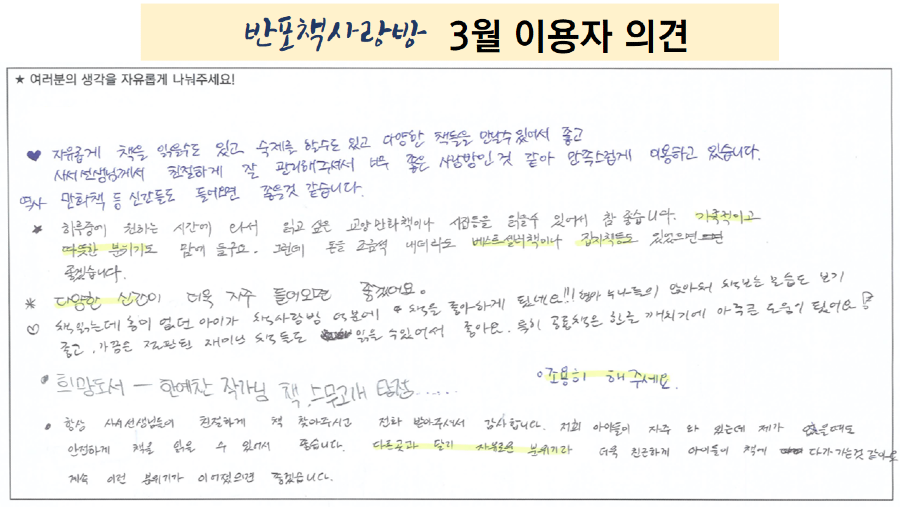 반포책사랑방 3월 이용자 의견
★ 여러분의 생각을 자유롭게 나눠주세요!
♥ 자유롭게 책을 읽을수도 있고 숙제를 할수도 있고 다양한 책들을 만날수있어서 좋고
사서선생님께서 친절하게 잘 관리해주셔서 너무 좋은 사랑방인 것 같아 만족스럽게 이용하고 있습니다.
역사 만화책 등 신간들도 들어오면 좋을것 같습니다.
★ 하루중에 원하는 시간에 와서 읽고 싶은 교양만화책이나 서적등을 읽을수 있어서 참 좋습니다. 가족적이고
따뜻한 분위기도 맘에 들구요. 그런데 돈을 조금씩 내더라도 베스트셀러책이나 잡지책등도 있었으면
좋겠습니다.
* 다양한 신간이 더욱 자주 들어오면 좋겠어요.
♡ 책읽는데 흥미 없던 아이가 책사랑방 덕분에 책을 좋아하게 됐네요!!! 형아 누나들이 앉아서 책보는 모습도 보기
좋고, 가끔은 절판된 재미난 책들도 읽을 수있어서 좋아요. 특히 공룡책은 한글 깨치기에 아주 큰 도움이 됐어요!
• 희망도서 — 한예찬 작가님 책, 스무고개 탐정......
○ 조용히 해 주세요.
• 항상 사서선생님들이 친절하게 책 찾아주시고 전화 받아주셔서 감사합니다. 저희 아이들이 자주 와 있는데 제가 없을때도
안전하게 책을 읽을 수 있어서 좋습니다. 다른곳과 달리 자유로운 분위기라 더욱 친근하게 아이들이 책에 다가가는것 같아요
계속 이런 분위기가 이어졌으면 좋겠습니다.